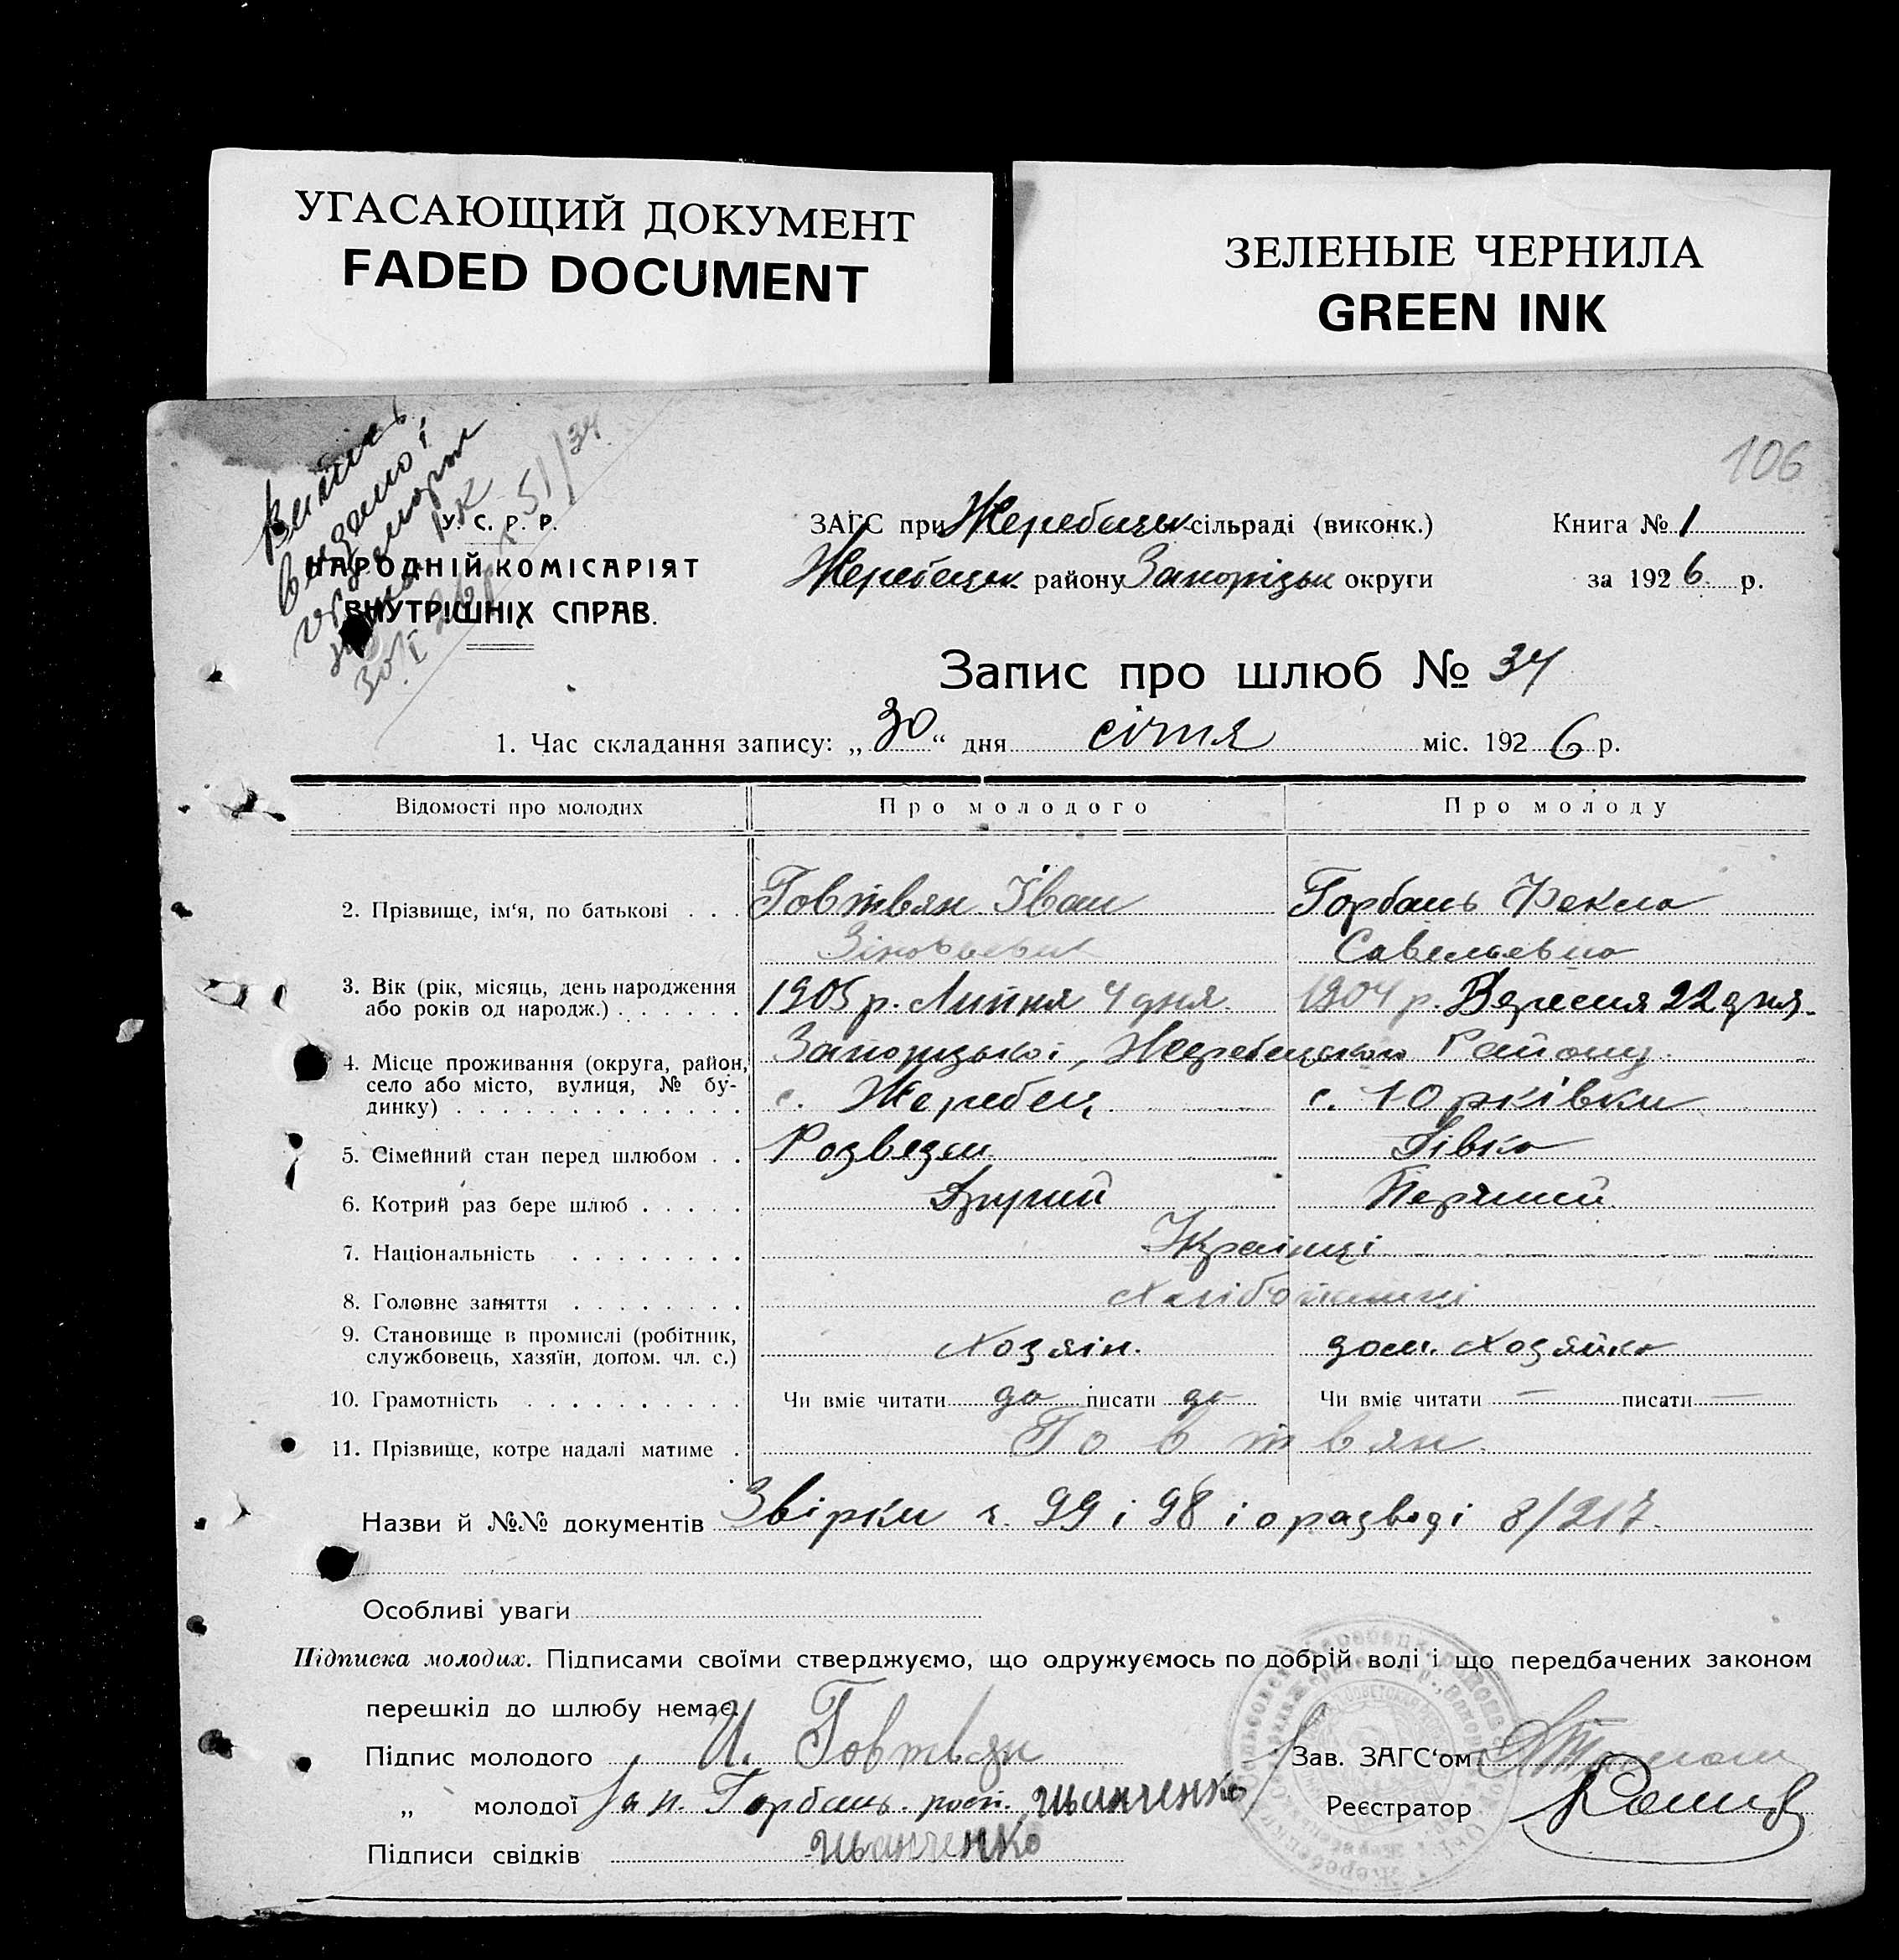 УГАСАЮЩИЙ ДОКУМЕНТ
FADED DOCUMENT
ЗЕЛЕНЫЕ ЧЕРНИЛА
GREEN INK
106
51/34
У. С. Р. Р.
НАРОДНІЙ КОМІСАРІЯТ
ВНУТРІШНІХ СПРАВ.
ЗАГС при Жеребецьк сільраді (виконк.) Книга № 1
Жеребецьк району Запорізьк округи за 1926 р.
Запис про шлюб № 34
1. Час складання запису: „30“ дня січня міс. 1926 р.
Відомості про молодих Про молодого Про молоду
2. Прізвище, ім‘я, по батькові . . . Говтвян Іван Горбань Фекла
Зіновьевич Савельевна
3. Вік (рік, місяць, день народження
або років од народж.) . . . . . . 1905 р. Липня 4 дня. 1904 р. Вересня 22 дня.
4. Місце проживання (округа, район,
село або місто, вулиця, № бу-
динку) . . . . . . . . . . . . .
Запорізької, Жеребецького Району.
с. Жеребец с. Юрківки
5. Сімейний стан перед шлюбом . . Розведен Дівка
6. Котрий раз бере шлюб . . . . . Другий Перший
7. Національність . . . . . . . . Українці
8. Головне заняття . . . . . . . . Хлібопашці
9. Становище в промислі (робітник,
службовець, хазяїн, допом. чл. с.) Хозяін. дом. Хозяйка
10. Грамотність . . . . . . . . . . Чи вміє читати да писати да Чи вміє читати — писати —
11. Прізвище, котре надалі матиме . Говтвян.
Назви й №№ документів Звірки ч. 99 і 98 і о разводі 8/217.
Особливі уваги
Підписка молодих. Підписами своїми стверджуємо, що одружуємось по добрій волі і що передбачених законом
перешкід до шлюбу немає.
Підпис молодого И. Говтвян Зав. ЗАГС‘ом
„ молодої За н. Горбань. росп. Ильиченко Реєстратор
Підписи свідків Ильиченко